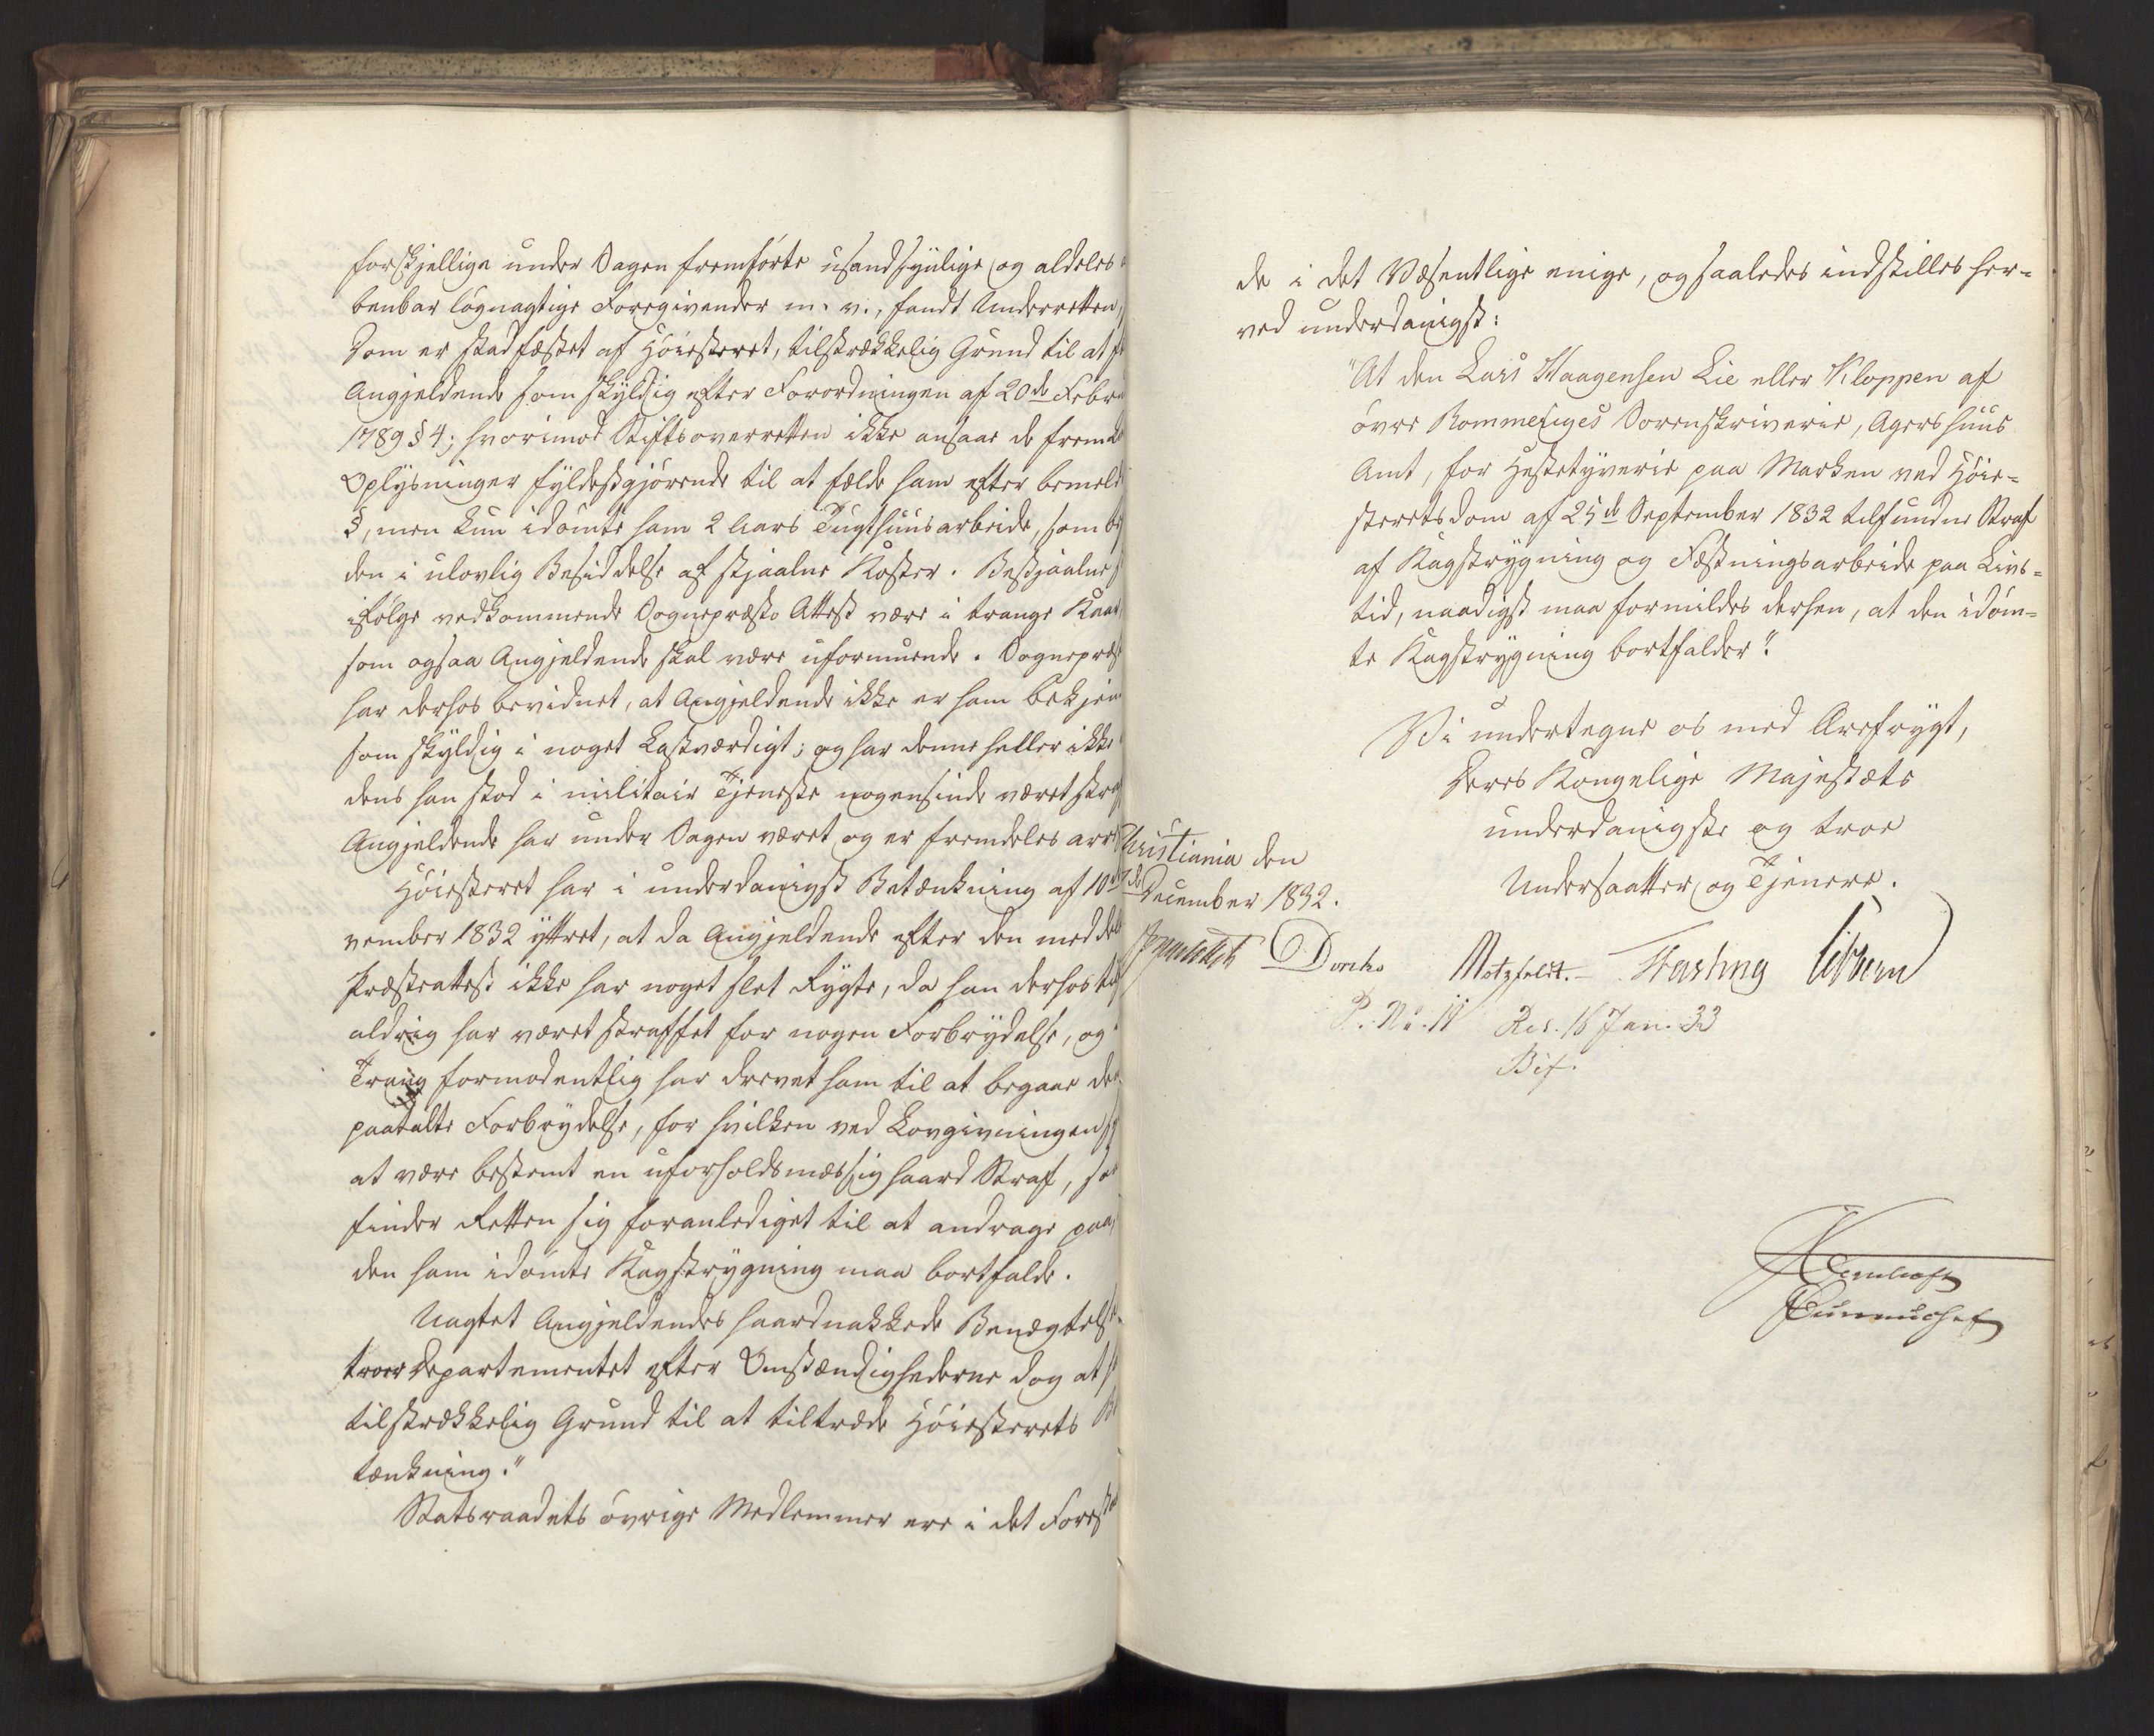 forskjellige under Sagen fremførte usandsynlige og aldeles
benbar løgnagtige Foregivender m. v., fandt Underretten,
som er stadfæstet af Høiesteret, tilstrækkelig Grund til at
Angjeldende som skyldig efter Forordningen af 20de Febr
1789 § 4; hvorimod Stiftsoverretten ikke ansaae de frem
Oplysninger fyldestgjørende til at fælde ham efter bemeld
§, men kun idømte ham 2 Aars Tugthuusarbeide, som
den i ulovlig Besiddelse af stjaalne Koster. Bestjaalne
ifølge vedkommende Sognepræsts Attest være i trange Kaar,
som ogsaa Angjeldende skal være uformuende. Sognepræst
har derhos bevidnet, at Angjeldende ikke er ham bekjen
som skyldig i noget Lastværdigt; og har denne heller ikke
dens han stod i militair Tjeneste nogensinde været straf
Angjeldende har under Sagen været og er fremdeles arre
Høiesteret har i underdanigst Betænkning af 10de
vember 1832 yttret, at da Angjeldende efter den meddeel
Præsteattest ikke har noget slet Rygte, da han derhos
aldrig har været straffet for nogen Forbrydelse, og
Trang formodentlig har drevet ham til at begaae den
paatalte Forbrydelse, for hvilken ved Lovgivningen
at være bestemt en uforholdsmæssig haard Straf, saa
finder Retten sig foranlediget til at andrage paa,
den ham idømte Kagstrygning maa bortfalde.
Uagtet Angjeldendes haardnakkede Benægtelse
troer Departementet efter Omstændighederne dog at
tilstrækkelig Grund til at tiltræde Høiesterets Be
tænkning."
Statsraadets øvrige Medlemmer ere i det Forest
de i det Væsentlige enige, og saaledes indstilles her-
ved underdanigst:
"At den Lars Haagensen Lie eller Kloppen af
øvre Rommeriges Sorenskriverie, Agershuus
Amt, for Hestetyverie paa Marken ved Høie-
steretsdom af 25de September 1832 tilfundne Straf
af Kagstrygning og Fæstningsarbeide paa Livs-
tid, naadigst maa formildes derhen, at den idøm-
te Kagstrygning bortfalder."
Vi undertegne os med Ærefrygt,
Deres Kongelige Majestæts
underdanigste og troe
Undersaatter og Tjenere.
Christiania den
de December 1832.
Motzfeldt. Fasting Sibbern
P. No. 11 Res. 16 Jan. 33
Bif.